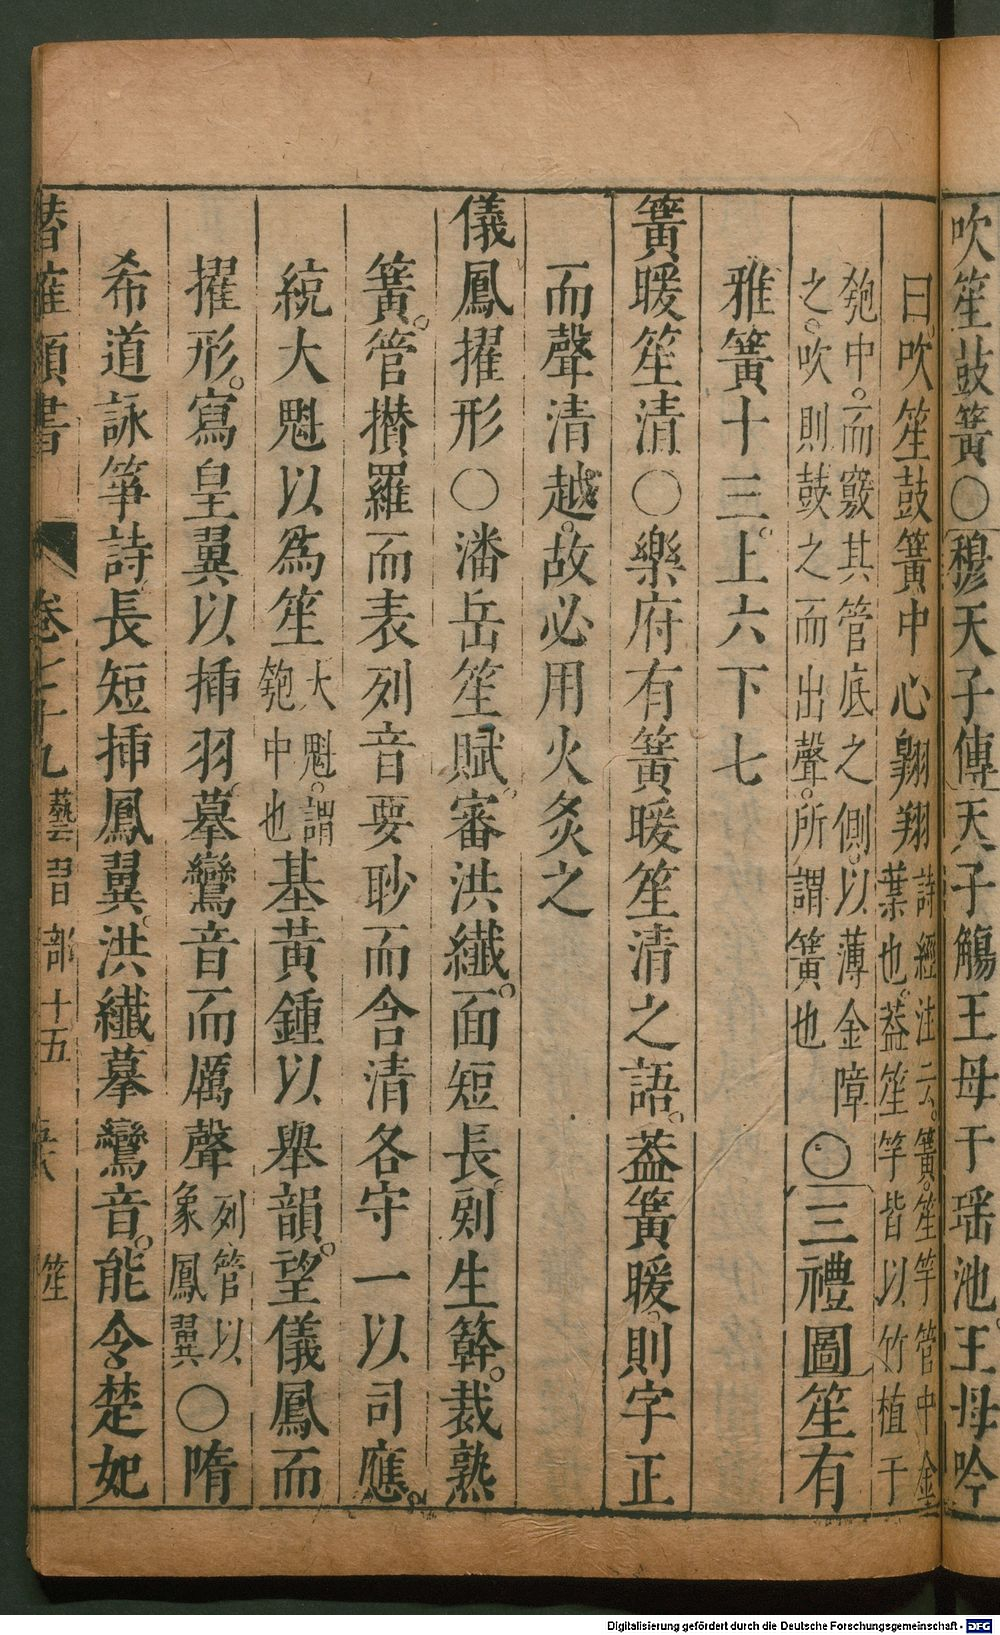 吹笙鼓簧〇穆天子傳天子觴王母于瑤池王母吟
曰吹笙鼓簧中心翱翔詩經注云簧笙竽管中金
葉也葢笙竽皆以竹植于
匏中而竅其管底之側以薄金障
之吹則鼓之而出聲所謂簧也〇三禮圖笙有
雅簧十三上六下七
簧暖笙清〇樂府有簧暖笙清之語葢簧暖則字正
而聲清越故必用火炙之
儀鳳擢形〇潘岳笙賦審洪纖面短長剡生簳裁熟
簧管攅羅而表列音要眇而含清各守一以司應
統大魁以爲笙大魁謂
匏中也基黃鍾以舉韻望儀鳳而
擢形寫皇翼以揷羽摹鸞音而厲聲列管以
象鳳翼〇隋
希道詠笙詩長短揷鳳翼洪纖摹鸞音能令楚妃
潛確類書 卷七十九 藝習部十五 笙
Digitalisierung gefördert durch die Deutsche Forschungsgemeinschaft - DFG